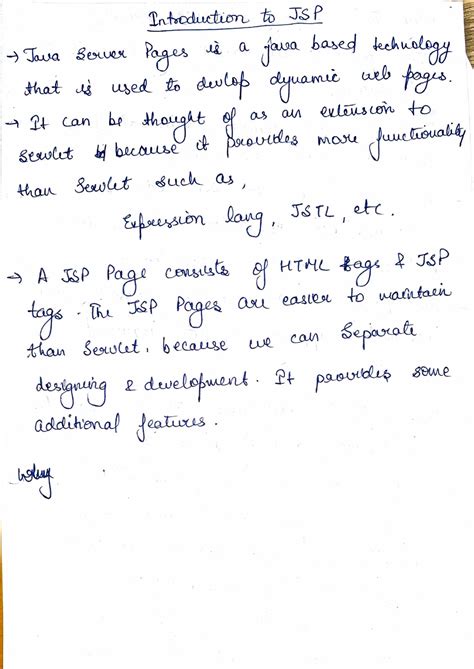 Introduction to JSP
→ Java Server Pages is a java based technology
that is used to devlop dynamic web pages.
→ It can be thought of as an extension to
Servlet because it provides more functionality
than Servlet such as,
Expression lang, JSTL, etc.
→ A JSP Page consists of HTML tags & JSP
tags. The JSP Pages are easier to maintain
than Servlet, because we can Separate
designing & development. It provides some
additional features.